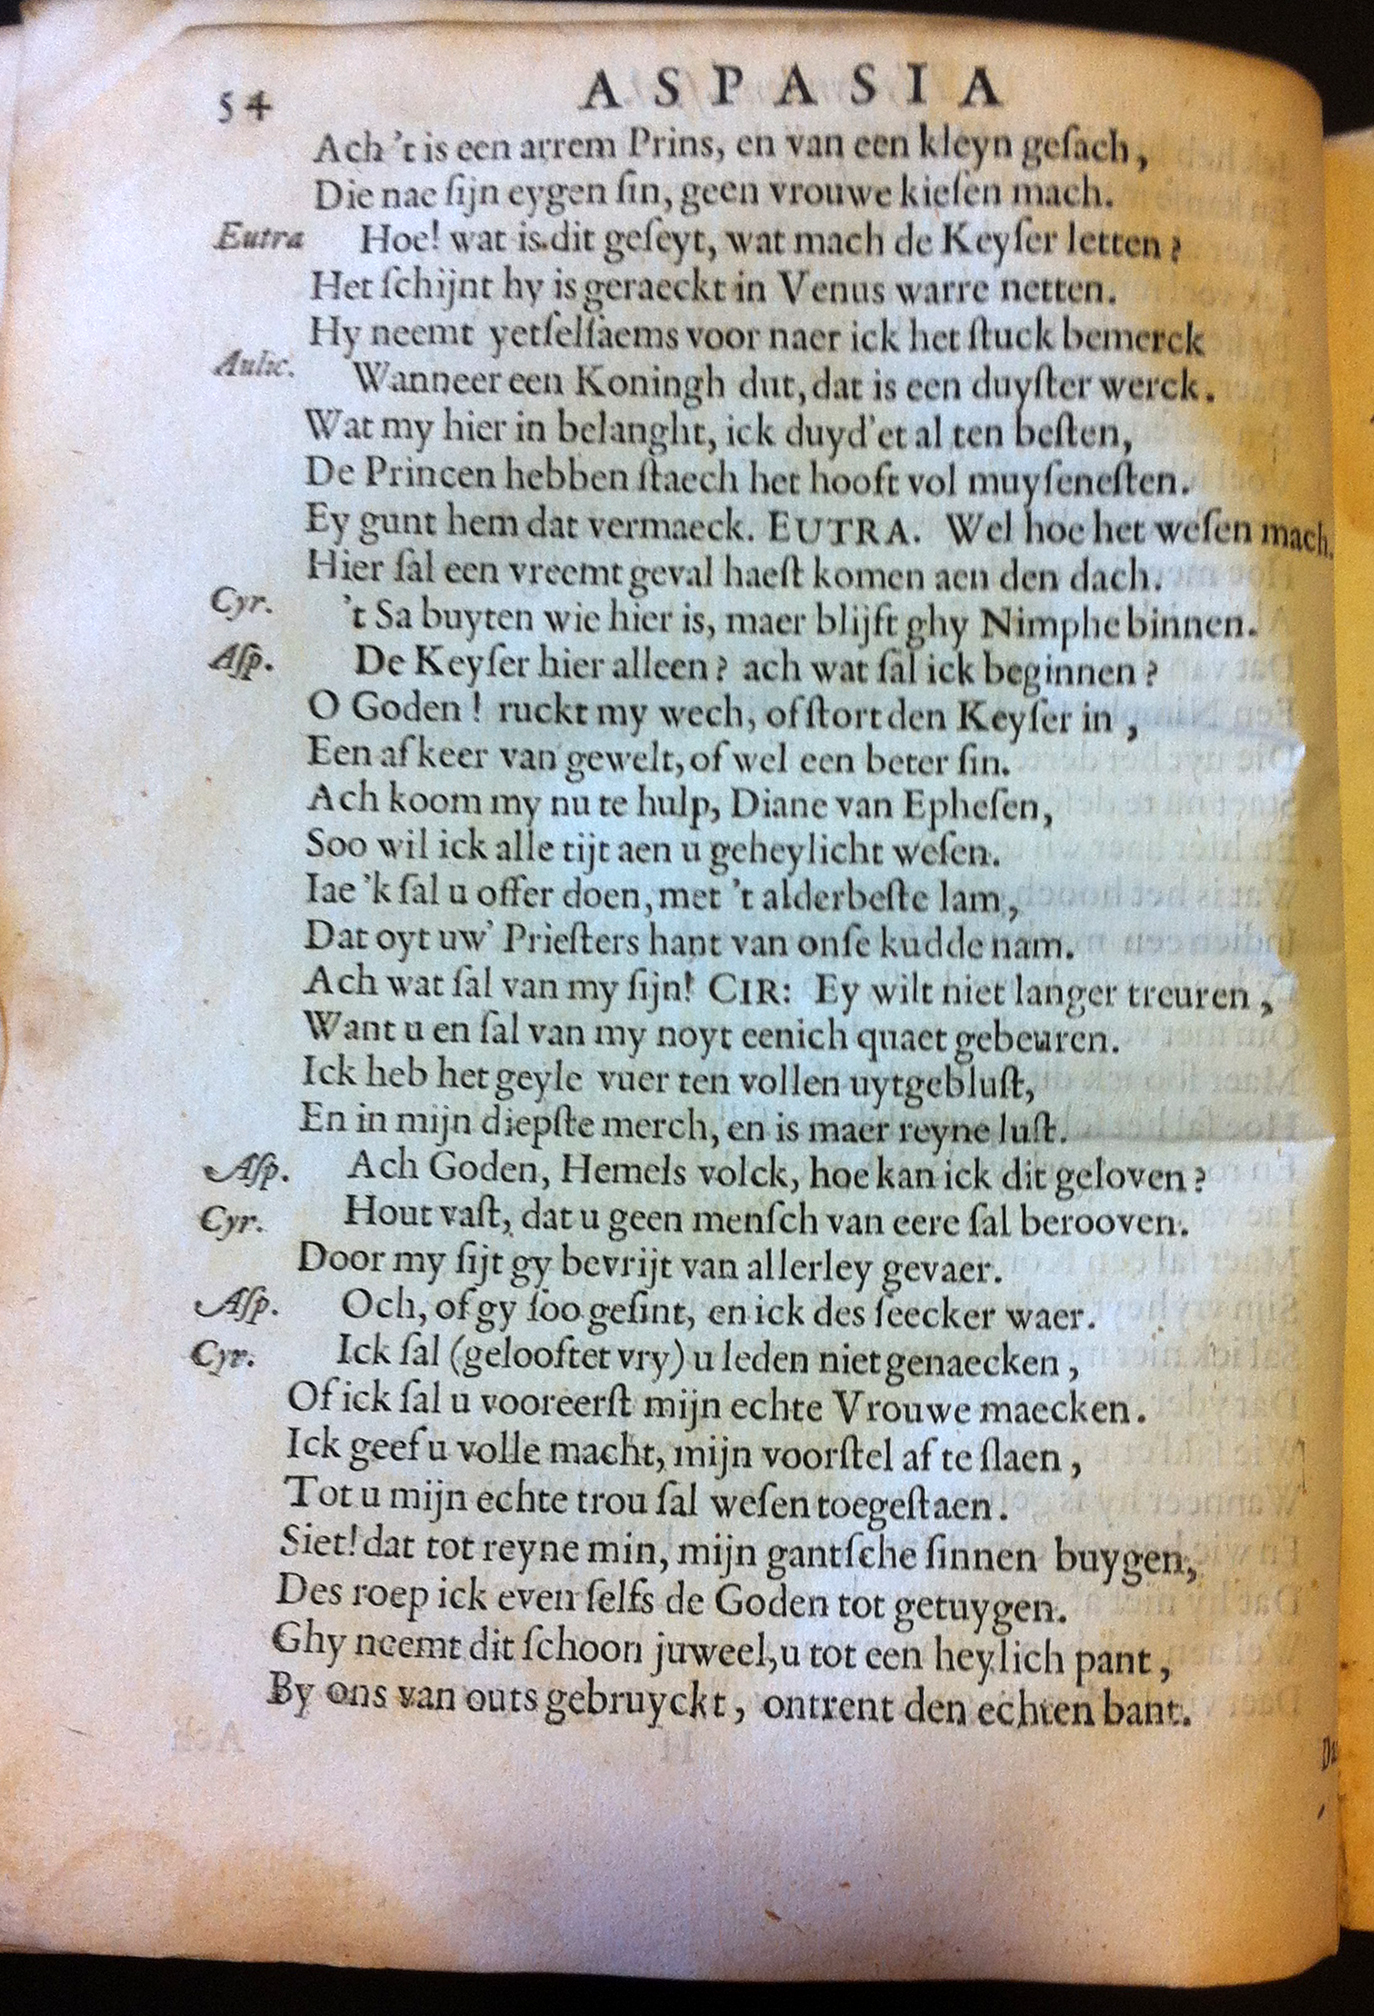 54 ASPASIA
Ach 't is een arrem Prins, en van een kleyn gesach,
Die nae sijn eygen sin, geen vrouwe kiesen mach.
Eutra Hoe! wat is dit geseyt, wat mach de Keyser letten?
Het schijnt hy is geraeckt in Venus warre netten.
Hy neemt yetselsaems voor naer ick het stuck bemerck
Aulic. Wanneer een Koningh dut, dat is een duyster werck.
Wat my hier in belanght, ick duyd'et al ten besten,
De Princen hebben staech het hooft vol muysenesten.
Ey gunt hem dat vermaeck. EUTRA. Wel hoe het wesen mach.
Hier sal een vreemt geval haest komen aen den dach.
Cyr. 't Sa buyten wie hier is, maer blijft ghy Nimphe binnen.
Asp. De Keyser hier alleen? ach wat sal ick beginnen?
O Goden! ruckt my wech, of stort den Keyser in,
Een afkeer van gewelt, of wel een beter sin.
Ach koom my nu te hulp, Diane van Ephesen,
Soo wil ick alle tijt aen u geheylicht wesen.
Iae 'k sal u offer doen, met 't alderbeste lam,
Dat oyt uw' Priesters hant van onse kudde nam.
Ach wat sal van my sijn! CIR: Ey wilt niet langer treuren,
Want u en sal van my noyt eenich quaet gebeuren.
Ick heb het geyle vuer ten vollen uytgeblust,
En in mijn diepste merch, en is maer reyne lust.
Asp. Ach Goden, Hemels volck, hoe kan ick dit geloven?
Cyr. Hout vast, dat u geen mensch van eere sal berooven.
Door my sijt gy bevrijt van allerley gevaer.
Asp. Och, of gy soo gesint, en ick des seecker waer.
Cyr. Ick sal (gelooftet vry) u leden niet genaecken,
Of ick sal u vooreerst mijn echte Vrouwe maecken.
Ick geef u volle macht, mijn voorstel af te slaen,
Tot u mijn echte trou sal wesen toegestaen.
Siet! dat tot reyne min, mijn gantsche sinnen buygen,
Des roep ick even selfs de Goden tot getuygen.
Ghy neemt dit schoon juweel, u tot een heylich pant,
By ons van outs gebruyckt, ontrent den echten bant.